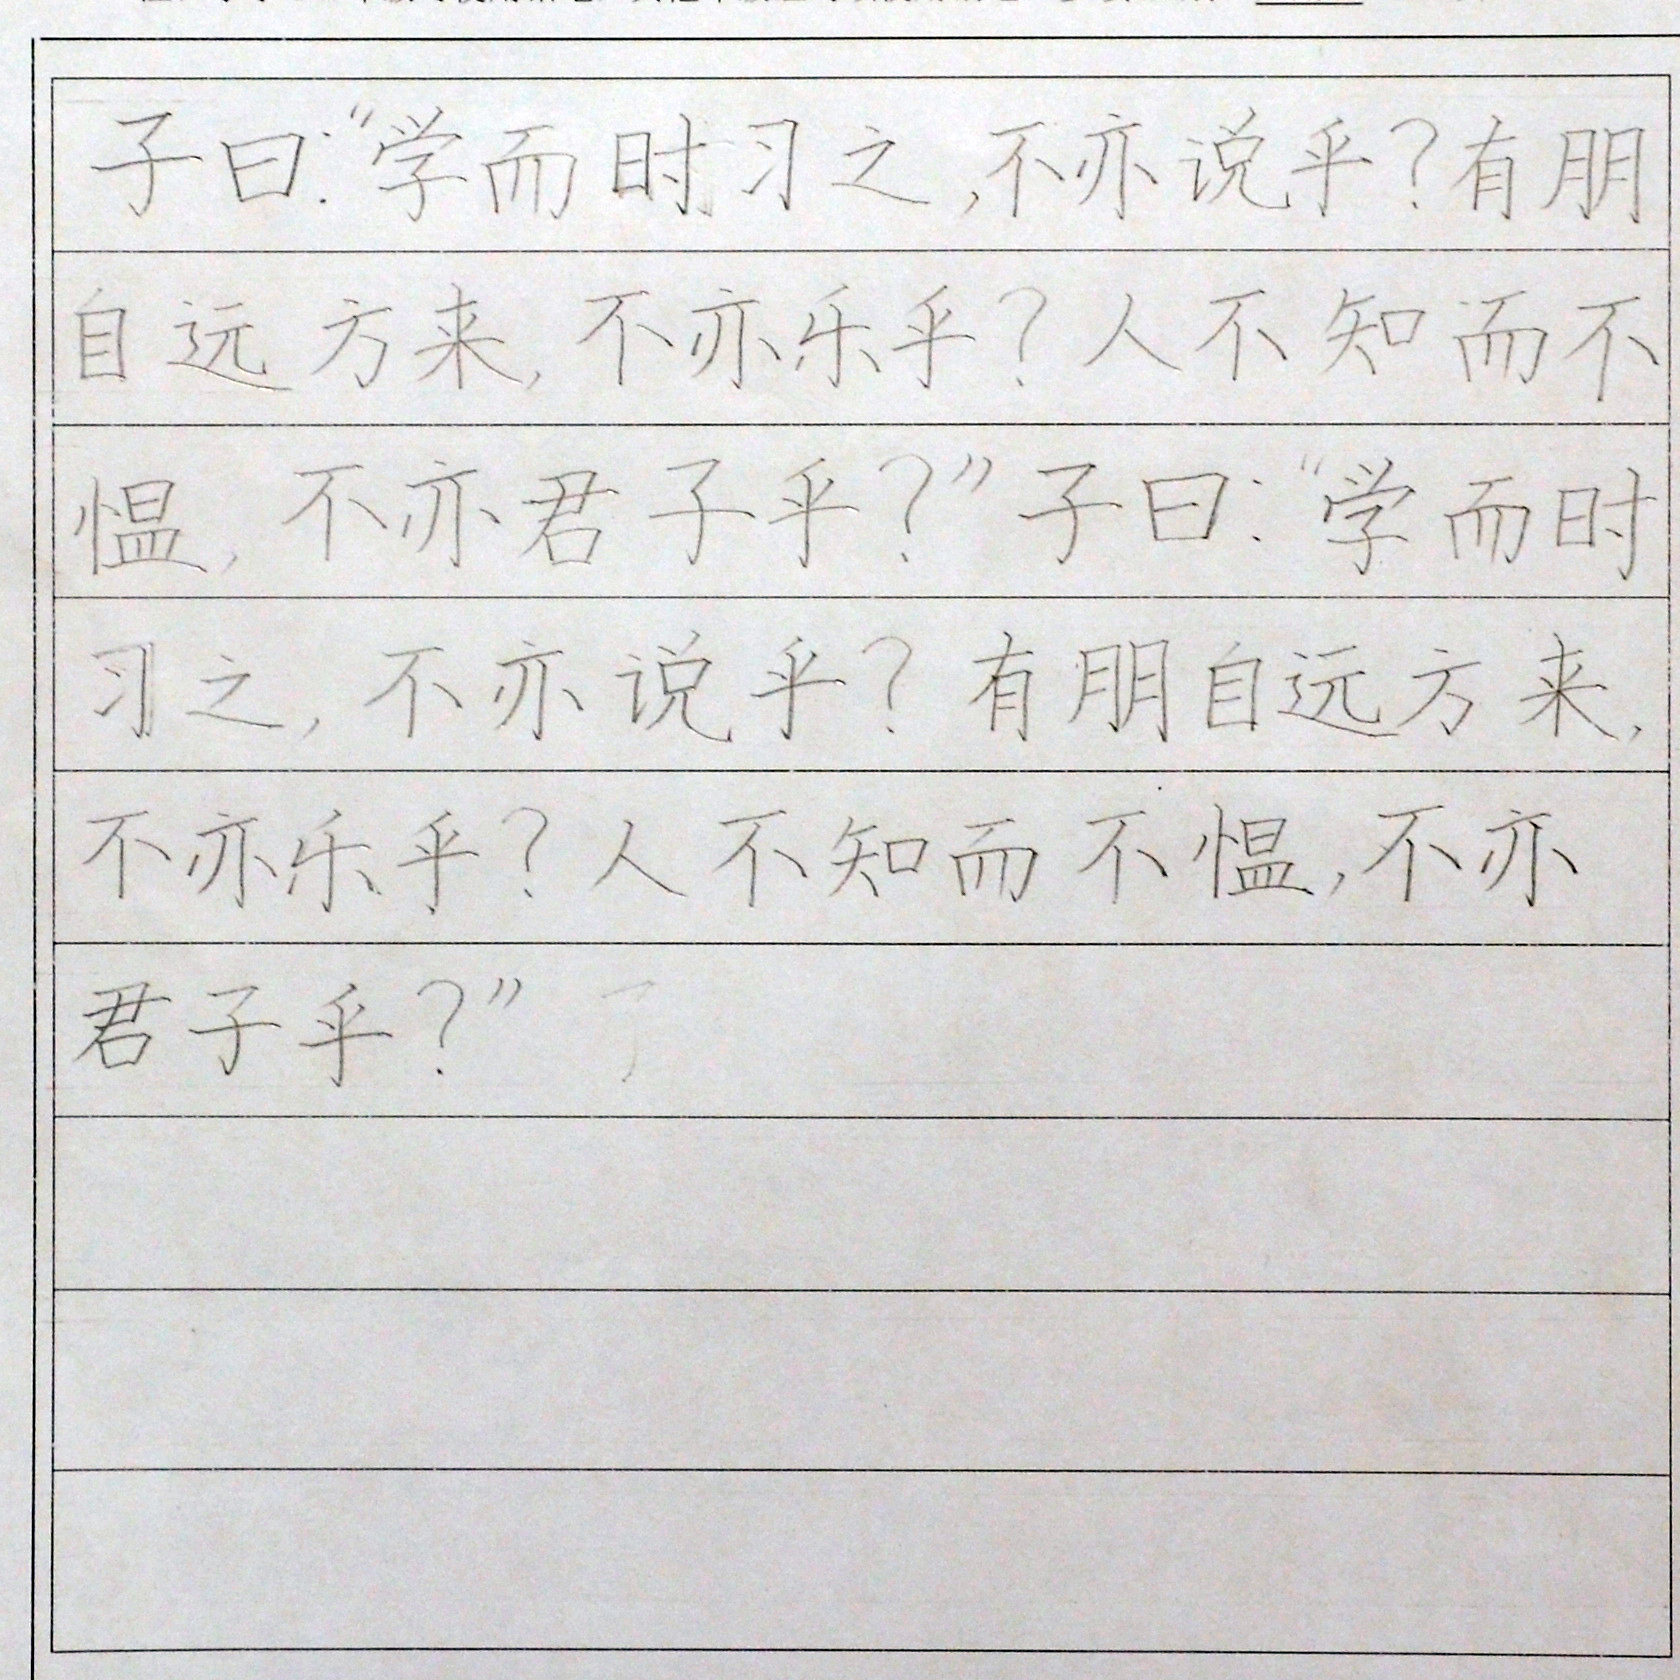 子曰：“学而时习之，不亦说乎？有朋
自远方来，不亦乐乎？人不知而不
愠，不亦君子乎？”子曰：“学而时
习之，不亦说乎？有朋自远方来，
不亦乐乎？人不知而不愠，不亦
君子乎？”